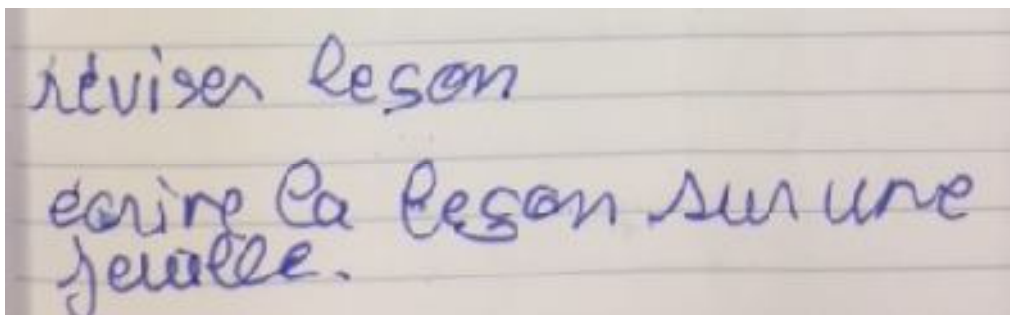 réviser leson
écrire la leçon sur une
feuille.